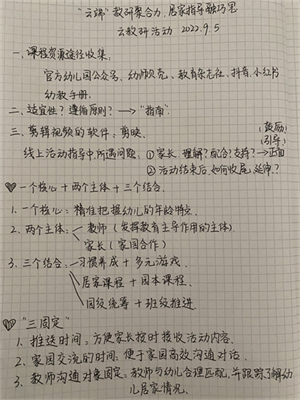 "云端"教研聚合力,居家指导融巧思
云教研活动 2022.9.5
一、课程资源途径收集.
官方幼儿园公众号、幼师贝壳、教育杂志社、抖音、小红书
幼教手册.
二、适宜性?遵循原则? → "指南"
三、剪辑视频的软件:剪映. (鼓励)
(引导)
线上活动指导中所遇问题. ①家长.理解?配合?支持?→正面
②活动结束后,如何收尾,延伸?
一个核心+两个主体+三个结合.
1.一个核心:精准把握幼儿的年龄特点.
2.两个主体: 教师(发挥教育主导作用的主体)
家长(家园合作)
3.三个结合: 习惯养成+多元游戏.
居家课程+园本课程.
园级统筹+班级推进
"三固定"
1.推送时间:方便家长按时接收活动内容.
2.家园交流的时间:便于家园高效沟通对话.
3.教师沟通对象固定:教师与幼儿合理匹配,并跟踪了解幼
儿居家情况.